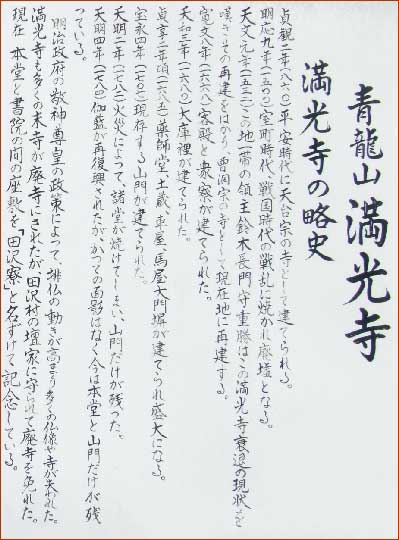 青龍山 満光寺
満光寺の略史
貞観二年(八六〇)平安時代に天台宗の寺として建てられる。
明応九年(一五〇〇)室町時代、戦国時代の戦乱に焼かれ廃墟となる。
天文元年(一五三二)この地一帯の領主鈴木長門守重勝はこの満光寺衰退の現状を
嘆きその再建をはかり、曹洞宗の寺として現在地に再建する。
寛文八年(一六六八)客殿と衆寮が建てられた。
天和三年(一六八三)大庫裡が建てられた。
貞享二年頃(一六八五)薬師堂、土蔵、車屋、馬屋大門塀が建てられ盛大になる。
宝永四年(一七〇七)現存する山門が建てられた。
天明二年(一七八二)火災によって諸堂が焼けてしまい、山門だけが残った。
天明四年(一七八四)伽藍が再復興されたが、かつての面影はなく今は本堂と山門だけが残
っている。
明治政府の敬神尊皇の政策によって、排仏の動きが高まり多くの仏像や寺が失われた。
満光寺も多くの末寺が廃寺にされたが田沢村の壇家に守られて廃寺を免れた。
現在 本堂と書院の間の座敷を「田沢寮」と名ずけて記念している。